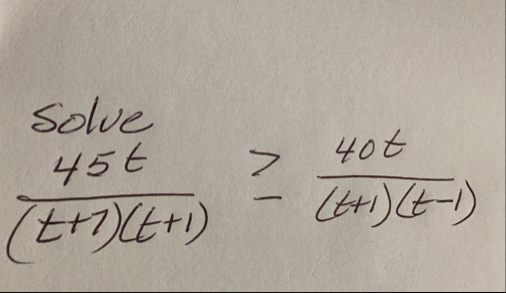 Solve
45t / (t+7)(t+1) ≥ 40t / (t+1)(t-1)